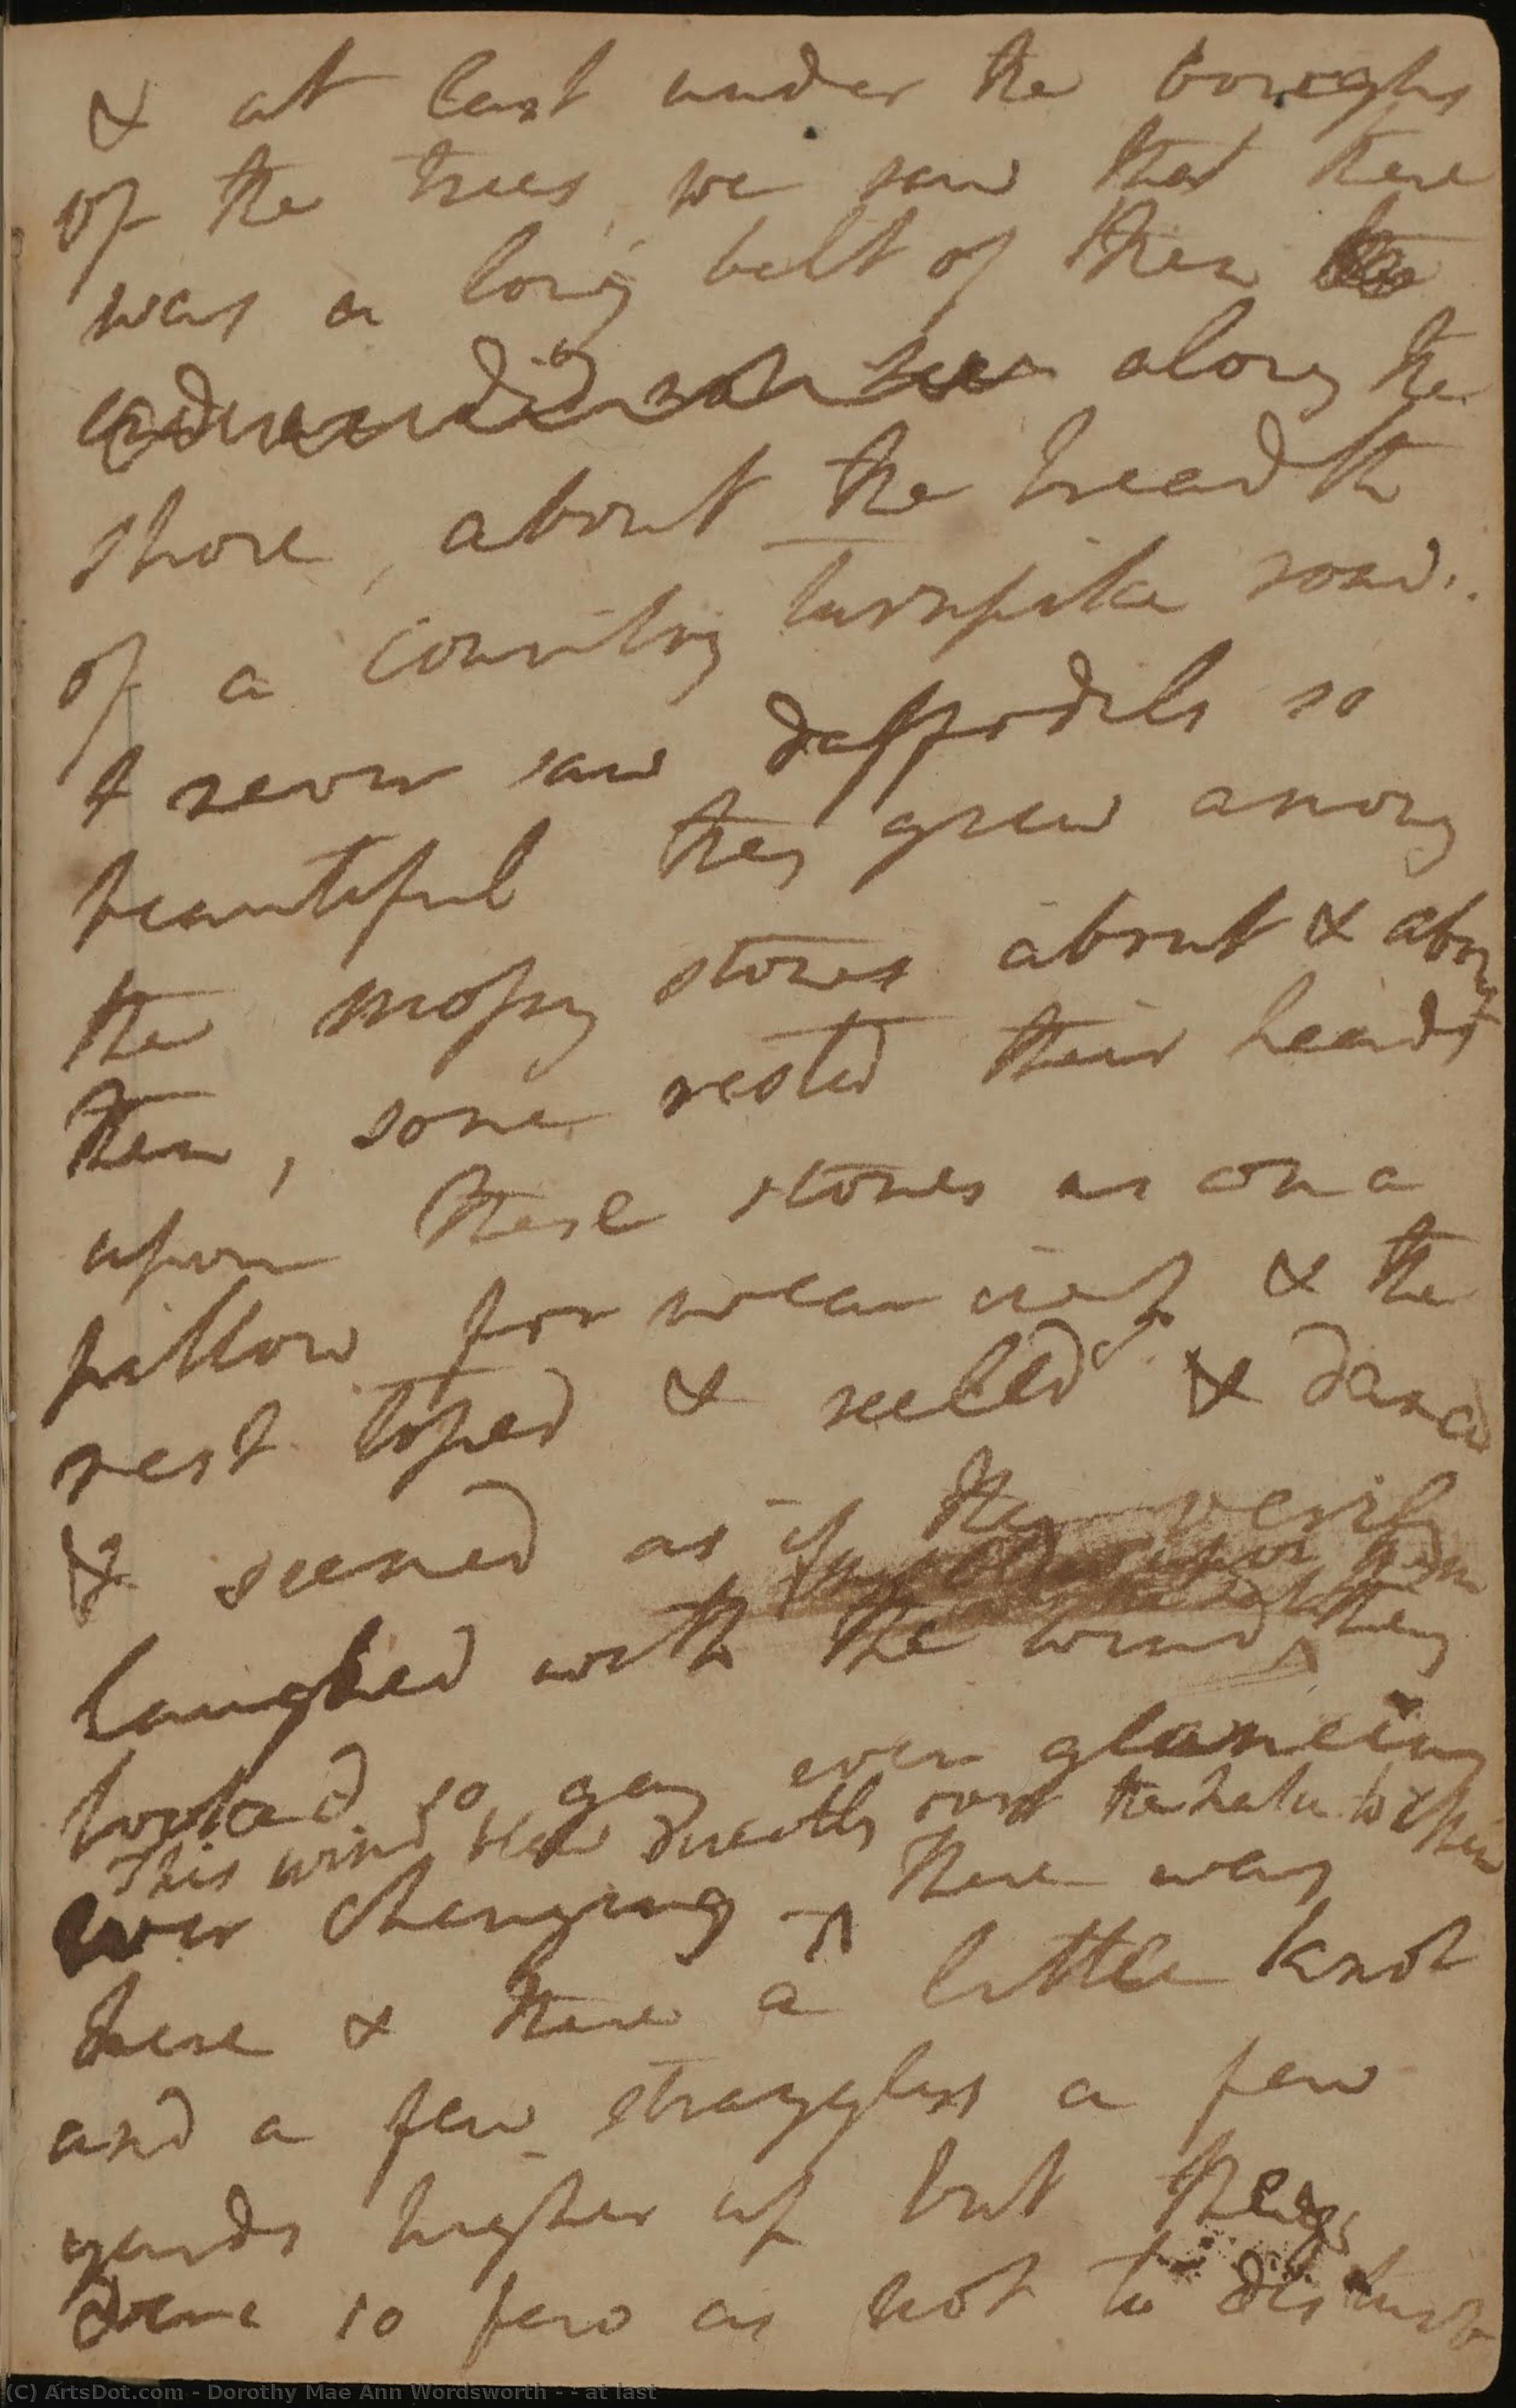 & at last under the boughs
of the trees, we saw that there
was a long belt of them
along the
shore, about the breadth
of a country turnpike road.
I never saw daffodils so
beautiful they grew among
the mossy stones about & about
them, some rested their heads
upon these stones as on a
pillow for weariness & the
rest tossed & reeled & danced
& seemed as if they verily
laughed with the wind they
looked so gay ever glancing
This wind blew directly over the lake to them
ever changing There was
here & there a little knot
and a few stragglers a few
yards higher up but they
were so few as not to disturb
(C) ArtsDot.com - Dorothy Mae Ann Wordsworth - - at last